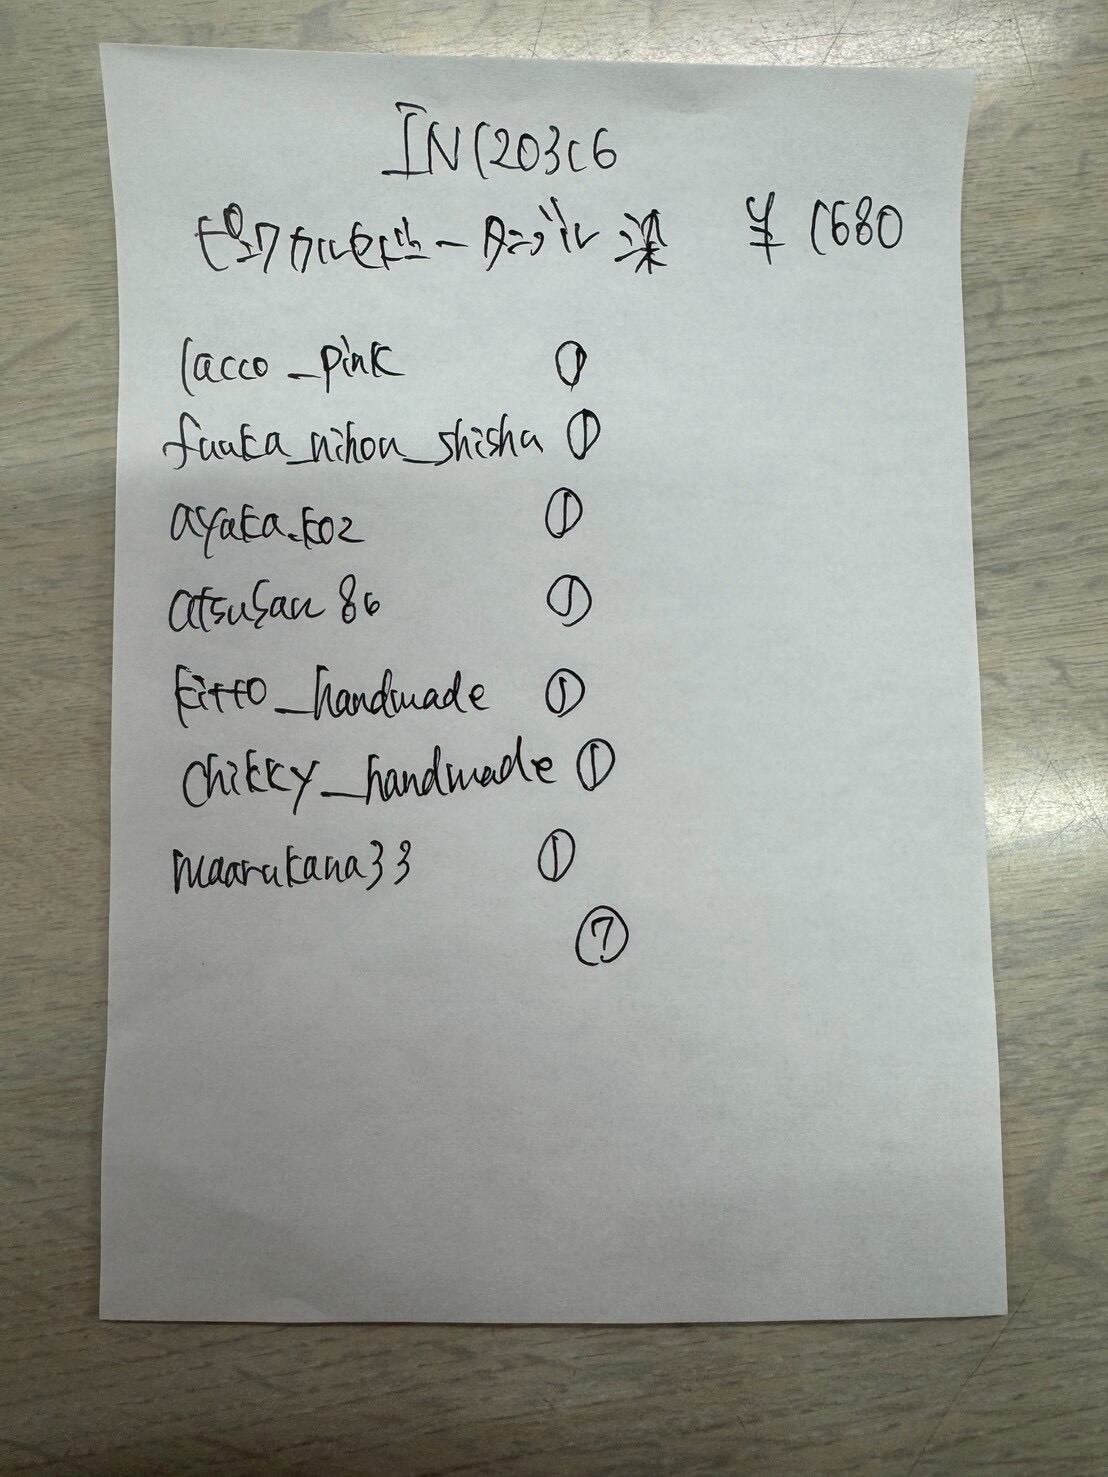 IN120316
ピュアカルセドニータンブル染 ¥1680
lacco_pink ①
fuuka_nihon_shisha ①
ayaka.k02 ①
atsusan86 ①
kitto_handmade ①
chikky_handmade ①
maarukana33 ①
⑦